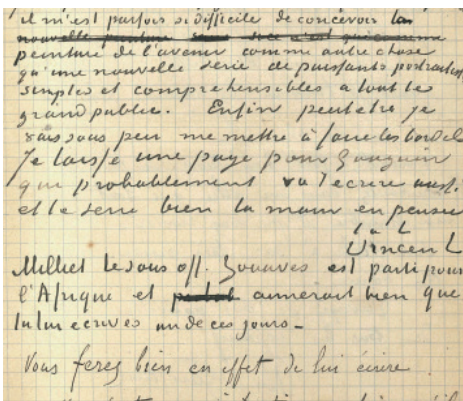 il m'est parfois si difficile de concevoir la
nouvelle peinture
peinture de l'avenir comme autre chose
qu'une nouvelle serie de puissants portraitistes
simples et comprehensibles a tout le
grand public. Enfin peut etre je
vais sous peu me mettre à faire les bordels
Je laisse une page pour Gauguin
que probablement va t'ecrire aussi
et te serre bien la main en pensee
t à t
Vincent
Milliet le sous off. Zouaves est parti pour
l'Afrique et aimerait bien que
tu lui ecrives un de ces jours_
Vous ferez bien en effet de lui écrire